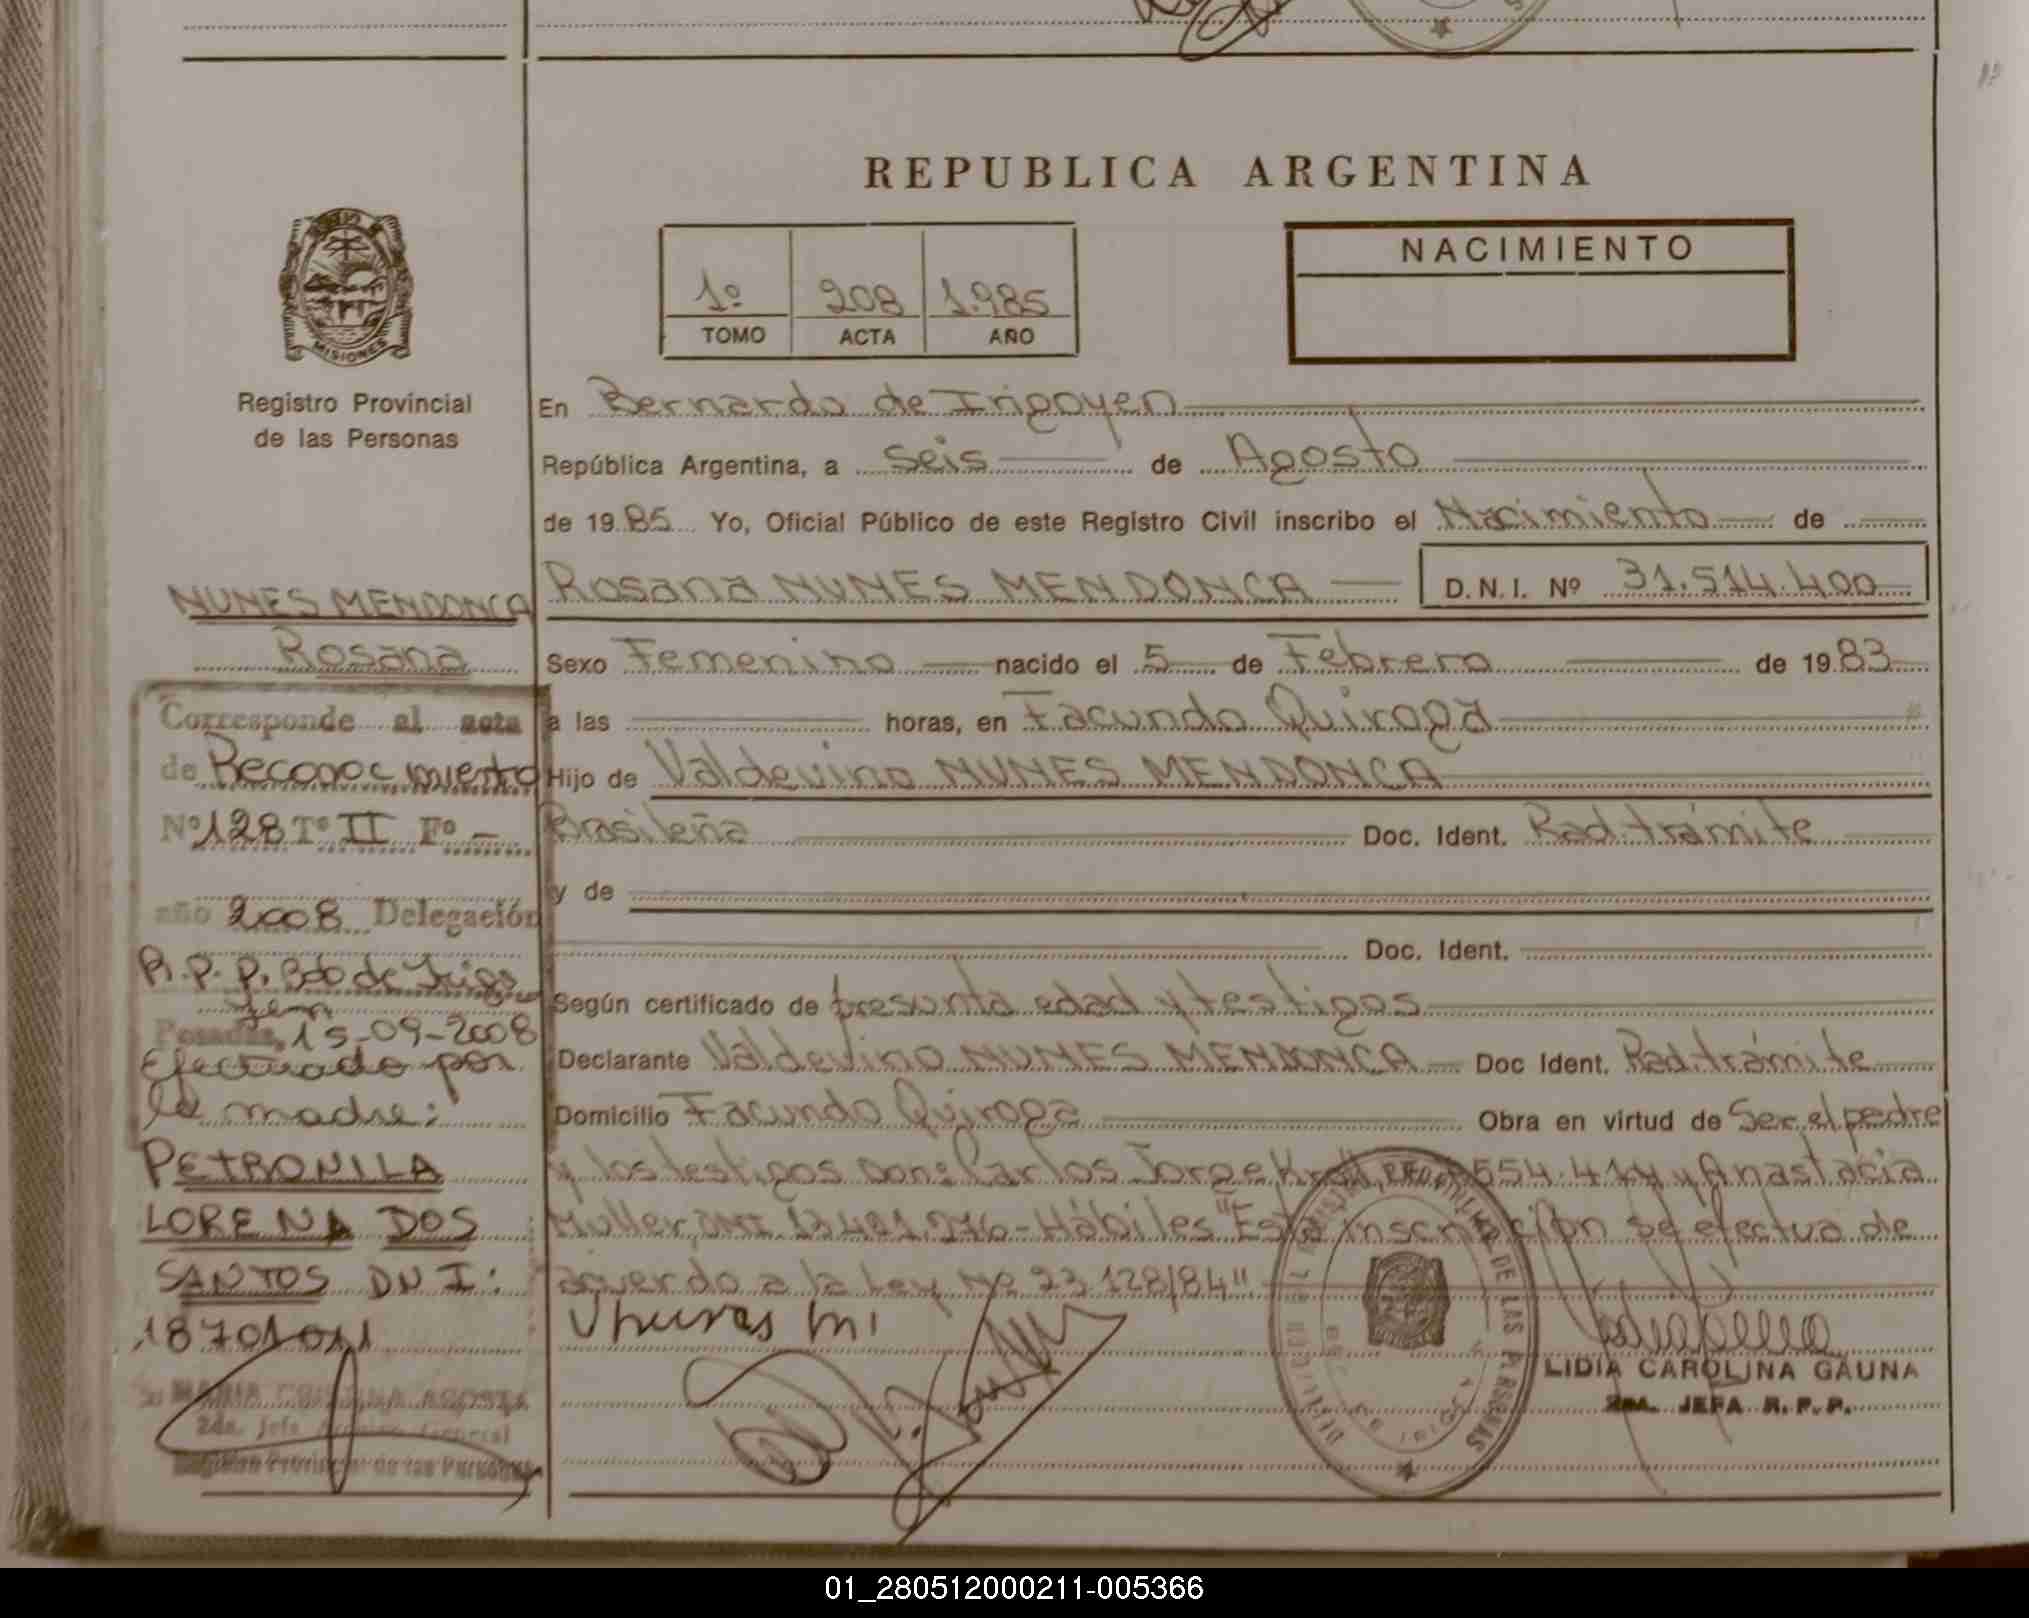 REPUBLICA ARGENTINA
NACIMIENTO
1º 208 1.985
TOMO ACTA AÑO
MISIONES
Registro Provincial
de las Personas
En Bernardo de Irigoyen
República Argentina, a Seis de Agosto
de 1985 Yo, Oficial Público de este Registro Civil inscribo el Nacimiento de
Rosana NUNES MENDONCA D.N.I. Nº 31.514.400
Sexo Femenino nacido el 5 de Febrero de 1983
a las horas, en Facundo Quiroga
Hijo de Valdevino NUNES MENDONCA
Brasileña Doc. Ident. Rad. trámite
y de
Doc. Ident.
Según certificado de presunta edad y testigos
Declarante Valdevino NUNES MENDONCA Doc Ident. Rad. trámite
Domicilio Facundo Quiroga Obra en virtud de Ser el padre
y los testigos son: Carlos Jorge 554.414 y Anastacia
Muller, DNI 13.401.976 - Hábiles "Esta inscripción se efectua de
acuerdo a la Ley Nº 23.128/84"
LIDIA CAROLINA GAUNA
2DA. JEFA R.P.P.
NUNES MENDONCA
Rosana
Corresponde al acta
de Reconocimiento
Nº 128 Tº II Fº -
año 2008 Delegación
R.P.P. Bdo de Irigo
yen
Posadas, 15-09-2008
Efectuado por
la madre:
PETRONILA
LORENA DOS
SANTOS DNI:
18701011
MARIA CRISTINA ACOSTA
2da. Jefa Archivo General
Registro Provincial de las Personas
01_280512000211-005366